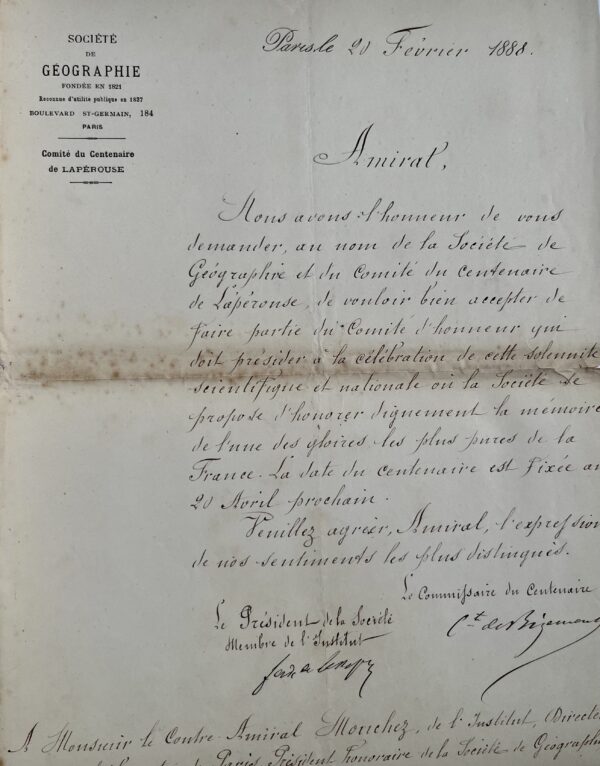 SOCIÉTÉ
DE
GÉOGRAPHIE
FONDÉE EN 1821
Reconnue d'utilité publique en 1827
BOULEVARD ST-GERMAIN, 184
PARIS
Comité du Centenaire
de LAPÉROUSE
Paris, le 20 Février 1888.
Amiral,
Nous avons l'honneur de vous
demander, au nom de la Société de
Géographie et du Comité du centenaire
de Lapérouse, de vouloir bien accepter de
faire partie du Comité d'honneur qui
doit présider à la célébration de cette solennité
scientifique et nationale où la Société se
propose d'honorer dignement la mémoire
de l'une des gloires les plus pures de la
France. La date du centenaire est fixée au
20 Avril prochain.
Veuillez agréer, Amiral, l'expression
de nos sentiments les plus distingués.
Le Commissaire du Centenaire
Le Président de la Société
Membre de l'Institut
Ct de Bizemont
Ferd de Lesseps
A Monsieur le Contre-Amiral Mouchez, de l'Institut, Directe
Paris, Président honoraire de la Société de Géographie